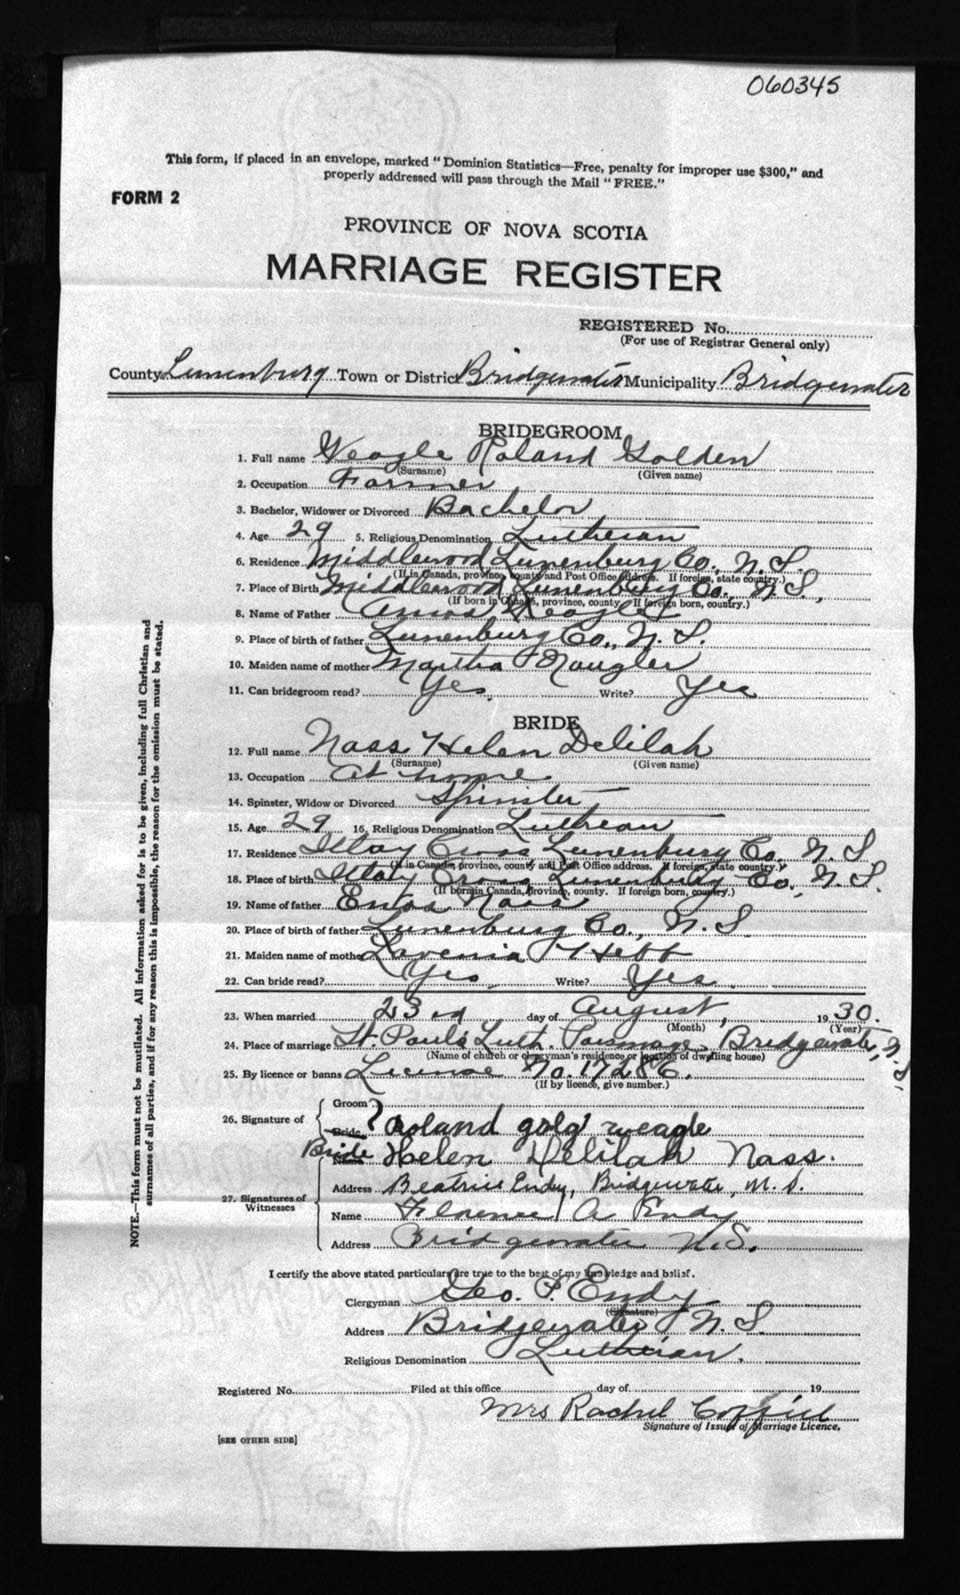 060345
This form, if placed in an envelope, marked "Dominion Statistics—Free, penalty for improper use $300," and
properly addressed will pass through the Mail "FREE."
FORM 2
PROVINCE OF NOVA SCOTIA
MARRIAGE REGISTER
REGISTERED No.
(For use of Registrar General only)
County Lunenburg Town or District Bridgewater Municipality Bridgewater
BRIDEGROOM
1. Full name Veagle Roland Golden
(Surname) (Given name)
2. Occupation Farmer
3. Bachelor, Widower or Divorced Bachelor
4. Age 29 5. Religious Denomination Lutheran
6. Residence Middlewood Lunenburg Co., N.S.
(If in Canada, province, county and Post Office address. If foreign, state country.)
7. Place of Birth Middlewood Lunenburg Co., N.S.,
(If born in Canada, province, county. If foreign born, country.)
8. Name of Father Amos Veagle
9. Place of birth of father Lunenburg Co., N.S.
10. Maiden name of mother Martha Naugler
11. Can bridegroom read? Yes, Write? Yes
BRIDE
12. Full name Nass Helen Delilah
(Surname) (Given name)
13. Occupation At home
14. Spinster, Widow or Divorced Spinster
15. Age 29 16. Religious Denomination Lutheran
17. Residence Italy Cross Lunenburg Co., N.S
(If in Canada, province, county and Post Office address. If foreign, state country.)
18. Place of birth Italy Cross Lunenburg Co., N.S.
(If born in Canada, province, county. If foreign born, country.)
19. Name of father Enos Nass
20. Place of birth of father Lunenburg Co., N.S.
21. Maiden name of mother Lavenia Hebb
22. Can bride read? Yes, Write? Yes.
23. When married 23rd day of August, 1930.
(Month) (Year)
24. Place of marriage St Paul's Luth. Parsonage, Bridgewater, N.S.
(Name of church or clergyman's residence or location of dwelling house)
25. By licence or banns License No. 17286.
(If by licence, give number.)
26. Signature of
Groom
Bride
Roland gold veagle
Bride Helen Delilah Nass.
27. Signatures of Witnesses
Address Beatrice Endy, Bridgewater, N.S.
Name Florence A Endy
Address Bridgewater N.S.
I certify the above stated particulars are true to the best of my knowledge and belief.
Clergyman Geo. P. Endy
(Signature)
Address Bridgewater N.S.
Religious Denomination Lutheran.
Registered No. Filed at this office day of 19
Mrs Rachel
Signature of Issuer of Marriage Licence.
[SEE OTHER SIDE]
NOTE.—This form must not be mutilated. All information asked for is to be given, including full Christian and
surnames of all parties, and if for any reason this is impossible, the reason for the omission must be stated.